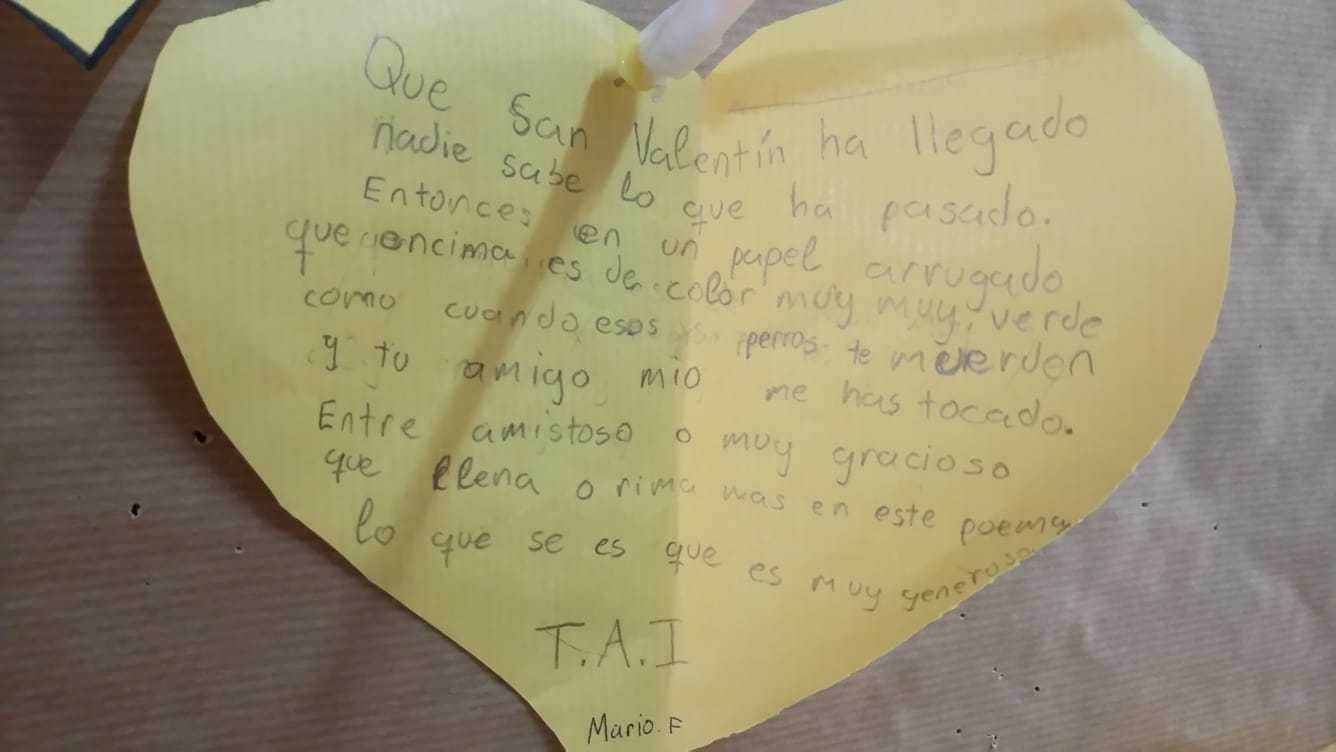 Que San Valentín ha llegado
nadie sabe lo que ha pasado.
Entonces en un papel arrugado
que encima es de color muy muy verde
como cuando esos perros te muerden
y tu amigo mio me has tocado.
Entre amistoso o muy gracioso
que llena o rima mas en este poema
lo que se es que es muy generoso
T.A.I
Mario.F